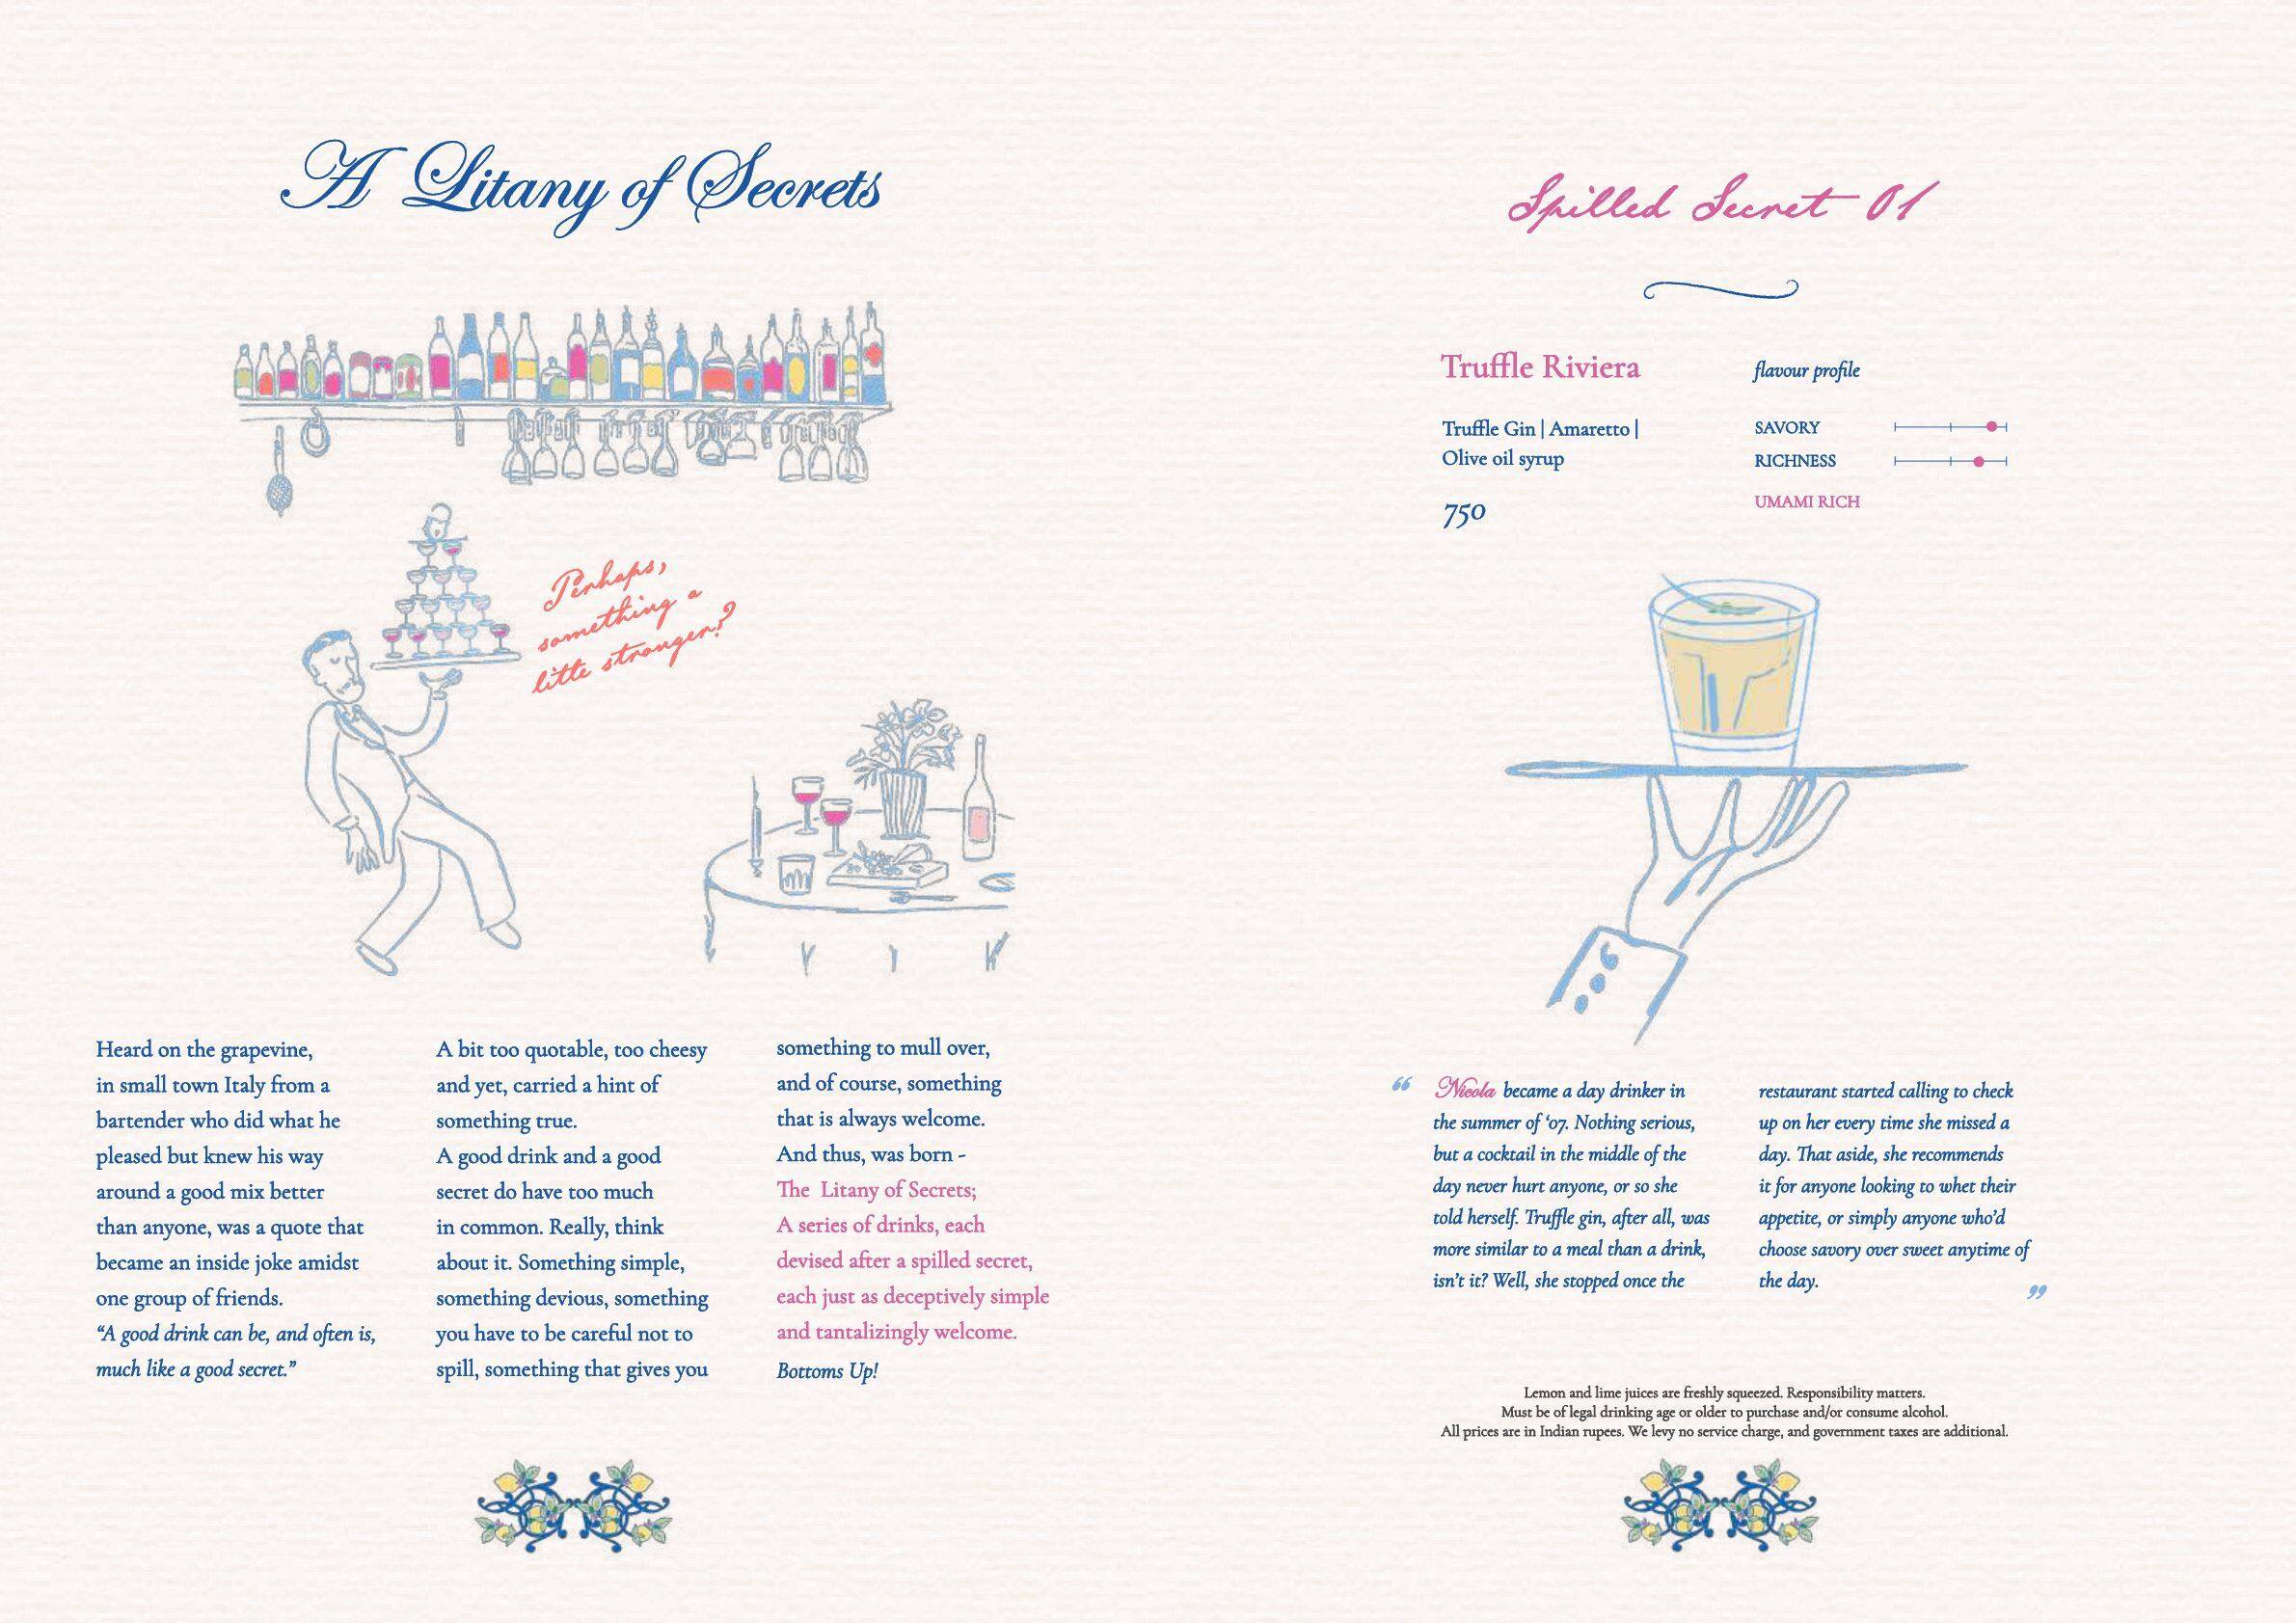 A Litany of Secrets
Perhaps,
something a
little stronger?
Heard on the grapevine,
in small town Italy from a
bartender who did what he
pleased but knew his way
around a good mix better
than anyone, was a quote that
became an inside joke amidst
one group of friends.
“A good drink can be, and often is,
much like a good secret.”
A bit too quotable, too cheesy
and yet, carried a hint of
something true.
A good drink and a good
secret do have too much
in common. Really, think
about it. Something simple,
something devious, something
you have to be careful not to
spill, something that gives you
something to mull over,
and of course, something
that is always welcome.
And thus, was born -
The Litany of Secrets;
A series of drinks, each
devised after a spilled secret,
each just as deceptively simple
and tantalizingly welcome.
Bottoms Up!
Spilled Secret 01
Truffle Riviera
Truffle Gin | Amaretto |
Olive oil syrup
750
flavour profile
SAVORY
RICHNESS
UMAMI RICH
“ Nicola became a day drinker in
the summer of ‘07. Nothing serious,
but a cocktail in the middle of the
day never hurt anyone, or so she
told herself. Truffle gin, after all, was
more similar to a meal than a drink,
isn’t it? Well, she stopped once the
restaurant started calling to check
up on her every time she missed a
day. That aside, she recommends
it for anyone looking to whet their
appetite, or simply anyone who’d
choose savory over sweet anytime of
the day. ”
Lemon and lime juices are freshly squeezed. Responsibility matters.
Must be of legal drinking age or older to purchase and/or consume alcohol.
All prices are in Indian rupees. We levy no service charge, and government taxes are additional.